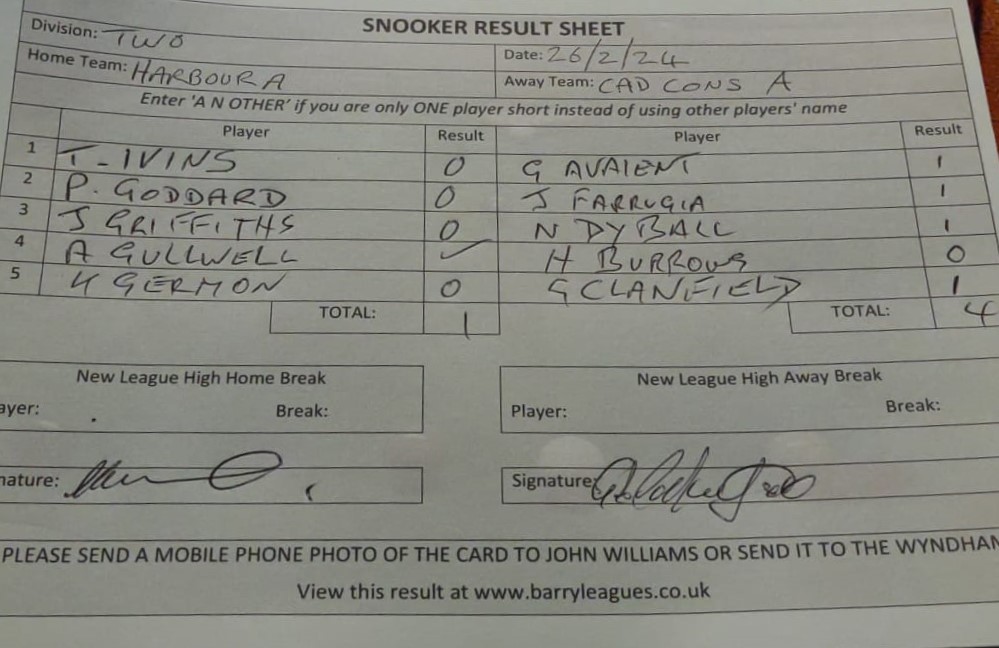 SNOOKER RESULT SHEET
Division: TWO Date: 26/2/24
Home Team: HARBOUR A Away Team: CAD CONS A
Enter 'A N OTHER' if you are only ONE player short instead of using other players' name
Player Result Player Result
1 T-IVINS 0 G AVAIENT 1
2 P. GODDARD 0 J FARRUGIA 1
3 J GRIFFITHS 0 N DYBALL 1
4 A GULLWELL ✓ H BURROWS 0
5 K GERMON 0 G CLANFIELD 1
TOTAL: 1 TOTAL: 4
New League High Home Break New League High Away Break
ayer: Break: Player: Break:
nature: Signature:
PLEASE SEND A MOBILE PHONE PHOTO OF THE CARD TO JOHN WILLIAMS OR SEND IT TO THE WYNDHAM
View this result at www.barryleagues.co.uk